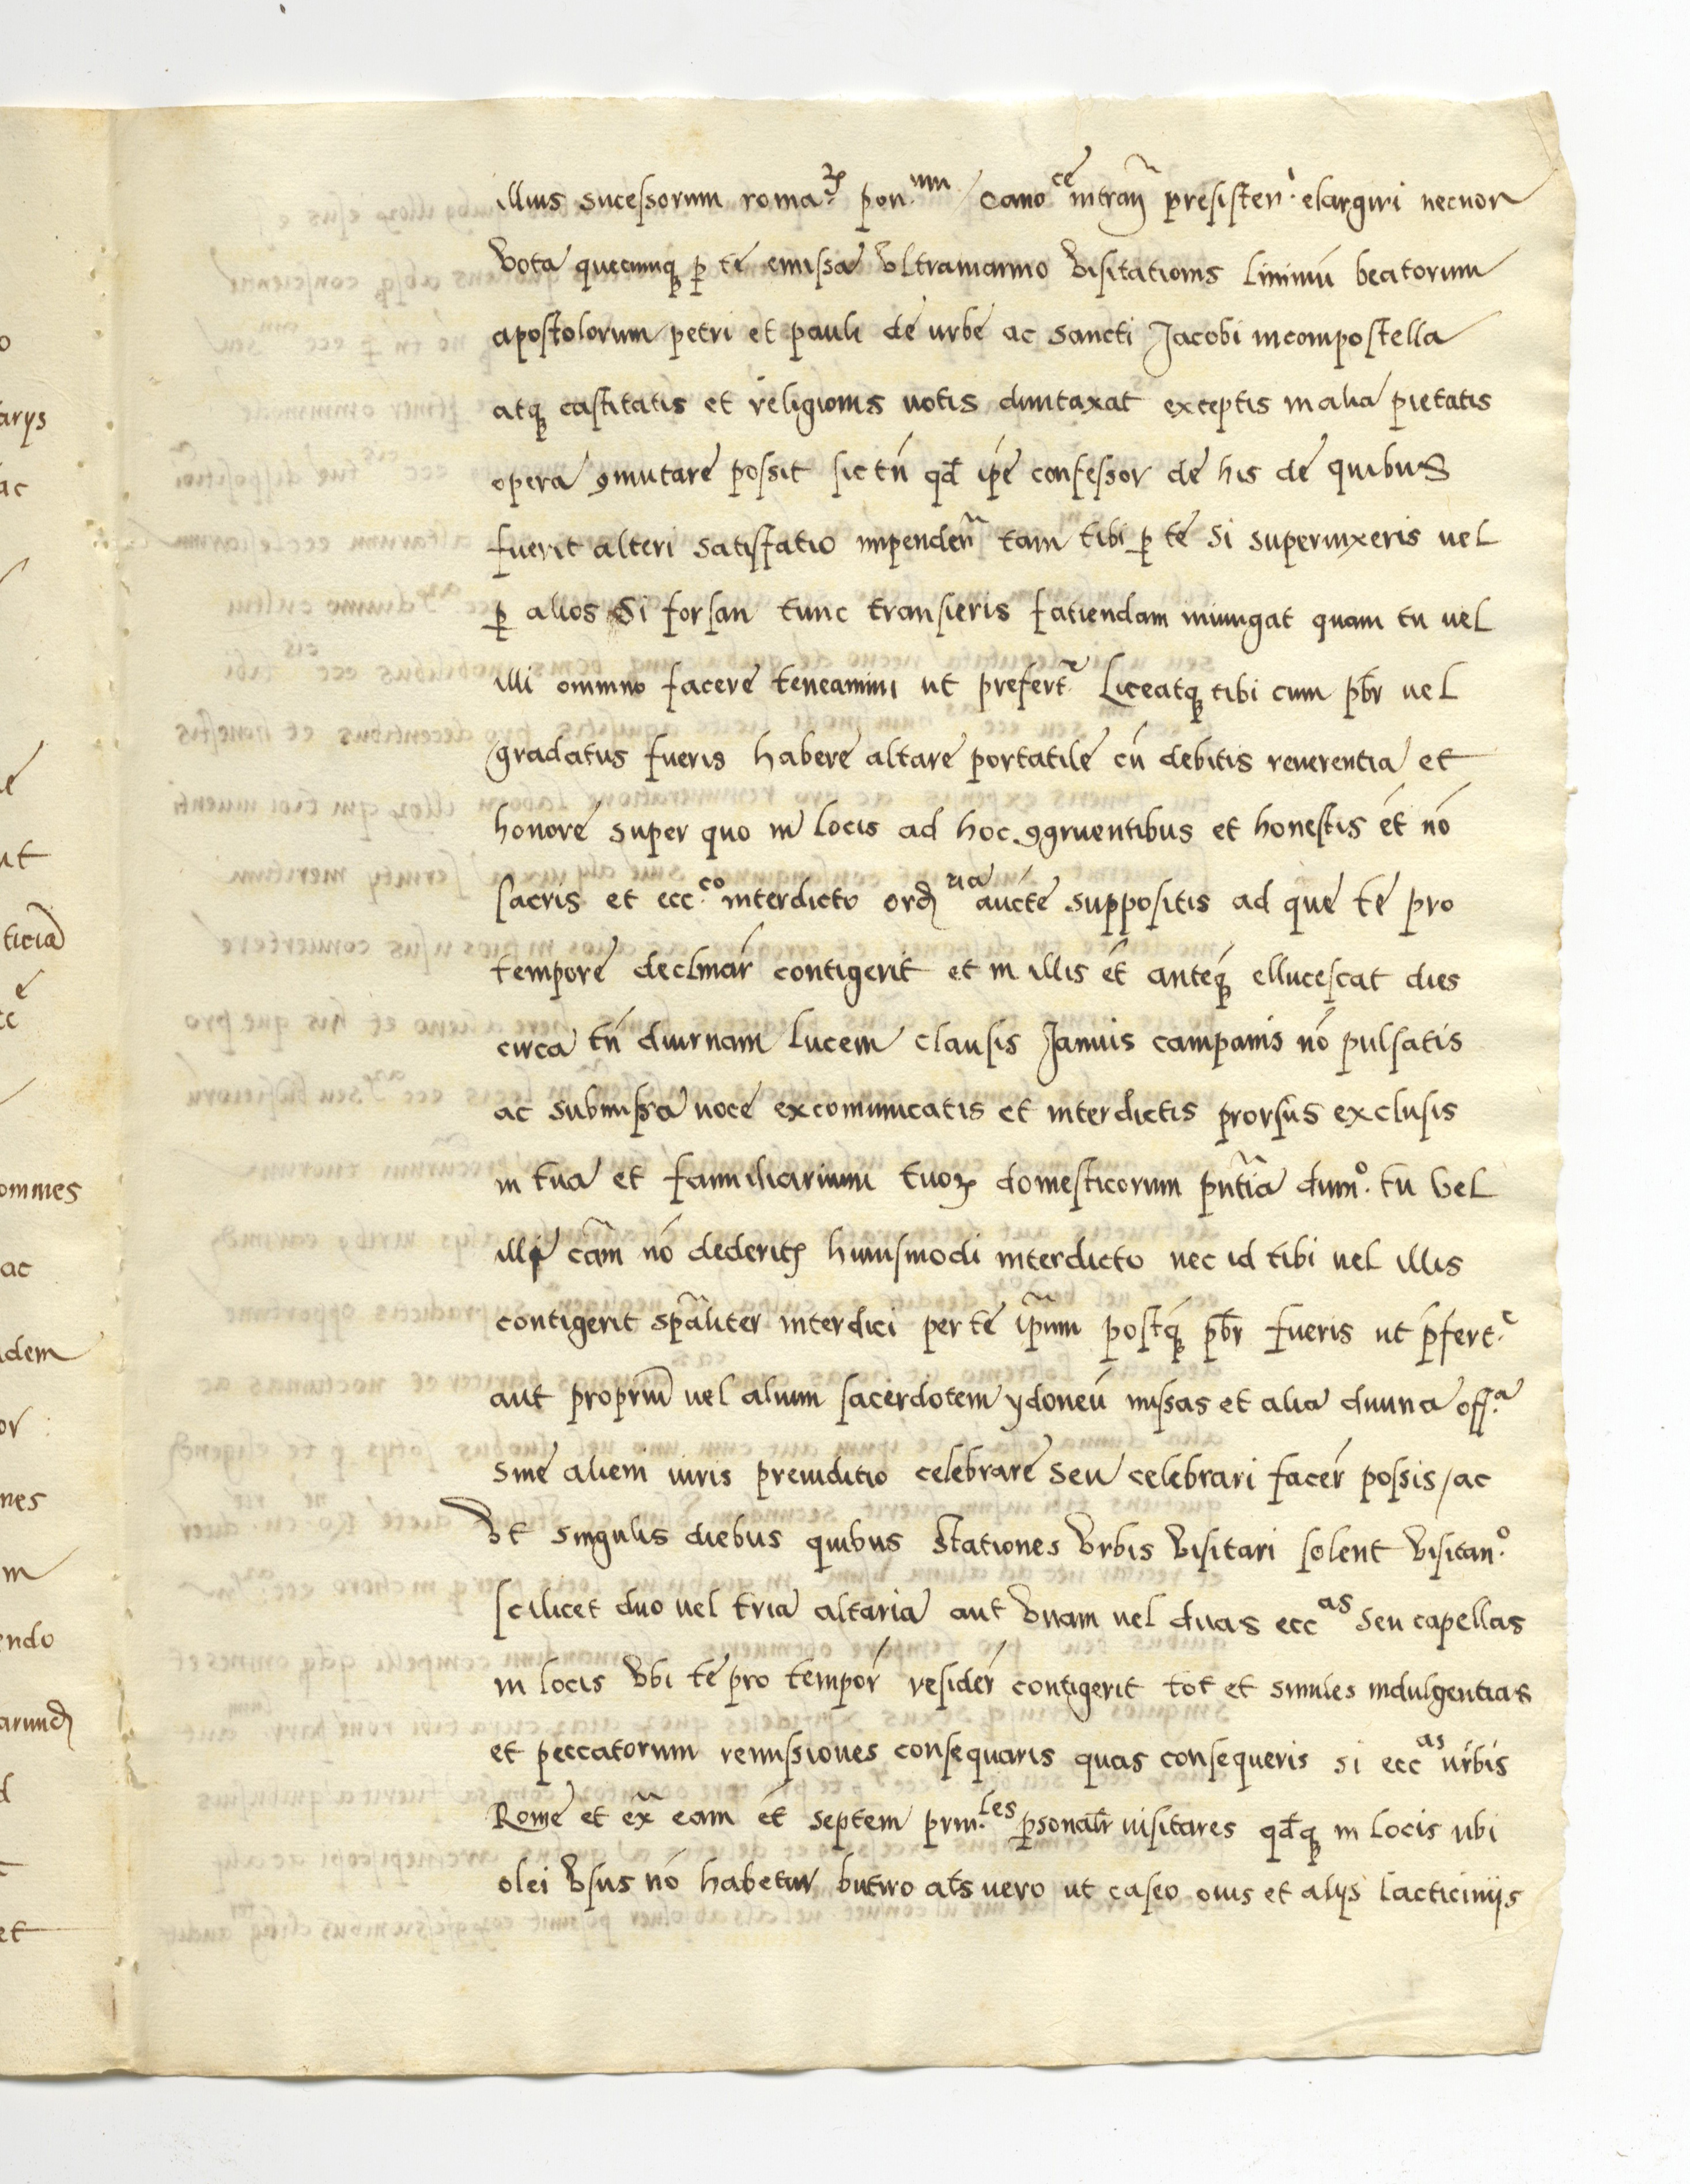 illius sucessorum romaꝝ pon.um / cano.ce intran̄ presisten.̀ elargiri necnon
vota quecumqꝫ ꝑ te emissa vltramarino visitationis liminū beatorum
apostolorum petri et pauli de urbe ac sancti Jacobi incompostella
atqꝫ castitatis et religionis uotis dumtaxat exceptis in alia pietatis
opera ꝯmutare possit sic tn̄ qd̄ ip̄e confessor de his de quibus
fuerit alteri satisfatio impenden̄ tam tibi ꝑ te si superuixeris uel
ꝑ alios Si forsan tunc transieris fatiendam iniungat quam tu uel
illi omnino facere teneamini ut prefert.r Liceatqꝫ tibi cum pb̄r uel
gradatus fueris habere altare portatile cū debitis reuerentia et
honore super quo in locis ad hoc ꝯgruentibus et honestis et́ nō
sacris et ecc.co interdicto ord ria aucte suppositis ad que te pro
tempore declinar̄ contigerit et in illis et́ anteqꝫ ellucescat dies
circa tn̄ diurnam lucem clausis Januis campanis nō pulsatis
ac submissa uoce excomunicatis et interdictis prorsus exclusis
in tua et familiarium tuoꝝ domesticorum pn̄tia dum.o tu vel
illi cām nō dederitꝭ huiusmodi interdicto nec id tibi uel illis
contigerit spāliter interdici per te ip̄um postqꝫ pb̄r fueris ut p̄fert.r
aut propriū uel alium sacerdotem ydoneū missas et alia diuina off.a
sine alieni iuris preiuditio celebrare seu celebrari facer̄ possis / ac
vt singulis diebus quibus stationes vrbis visitari solent visitan.o
scilicet duo uel tria altaria aut vnam uel duas ecc as seu capellas
in locis vbi te pro tempor̄ resider̄ contigerit tot et similes indulgentias
et peccatorum remissiones consequaris quas consequeris si ecc as urbis
Rome et ex̄ eam et́ septem prin.les ꝑsonalr̄ uisitares qd̄qꝫ in locis ubi
olei vsus nō habetur butiro al̄s uero ut caseo ouis et alijs lacticinijs